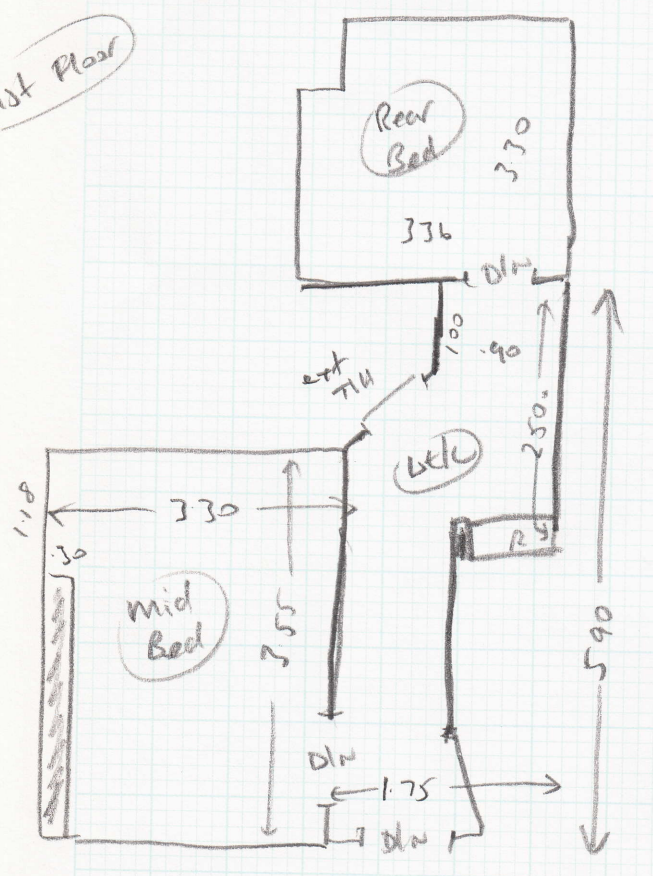 1st Floor
Rear
Bed
3.30
336
D/N
1.00
.90
ext
2.50
1.18
3.30
.30
mid
Bed
3.55
5.90
D/N
1.75
D/N